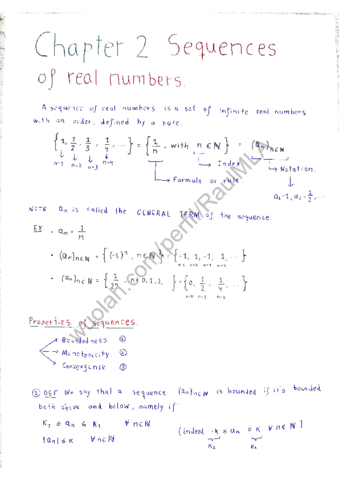 Chapter 2 Sequences
of real numbers.
A sequence of real numbers is a set of infinite real numbers
with an order, defined by a rule.
{1, 1/2, 1/3, 1/4, ...} = {1/n, with n ∈ ℕ} = (aₙ)ₙ∈ℕ
n=1 n=2 n=3 n=4
Index
Notation.
Formula or rule.
a₁=1, a₂=1/2, ...
NOTE aₙ is called the GENERAL TERM of the sequence.
EX · aₙ = 1/n
· (aₙ)ₙ∈ℕ = {(-1)ⁿ, n∈ℕ} = {-1, 1, -1, 1, ...}
n=1 n=2 n=3 n=4
Properties of sequences.
Boundedness ①
Monotonicity ②
Convergence ③
① DEF We say that a sequence (aₙ)ₙ∈ℕ is bounded if it's bounded
both above and below, namely if:
K₂ ≤ aₙ ≤ K₁ ∀n∈ℕ
|aₙ| ≤ K ∀n∈ℕ
(indeed -K ≤ aₙ ≤ K ∀n∈ℕ)
K₂ K₁
wuolah.com/perfil/RaulMLA